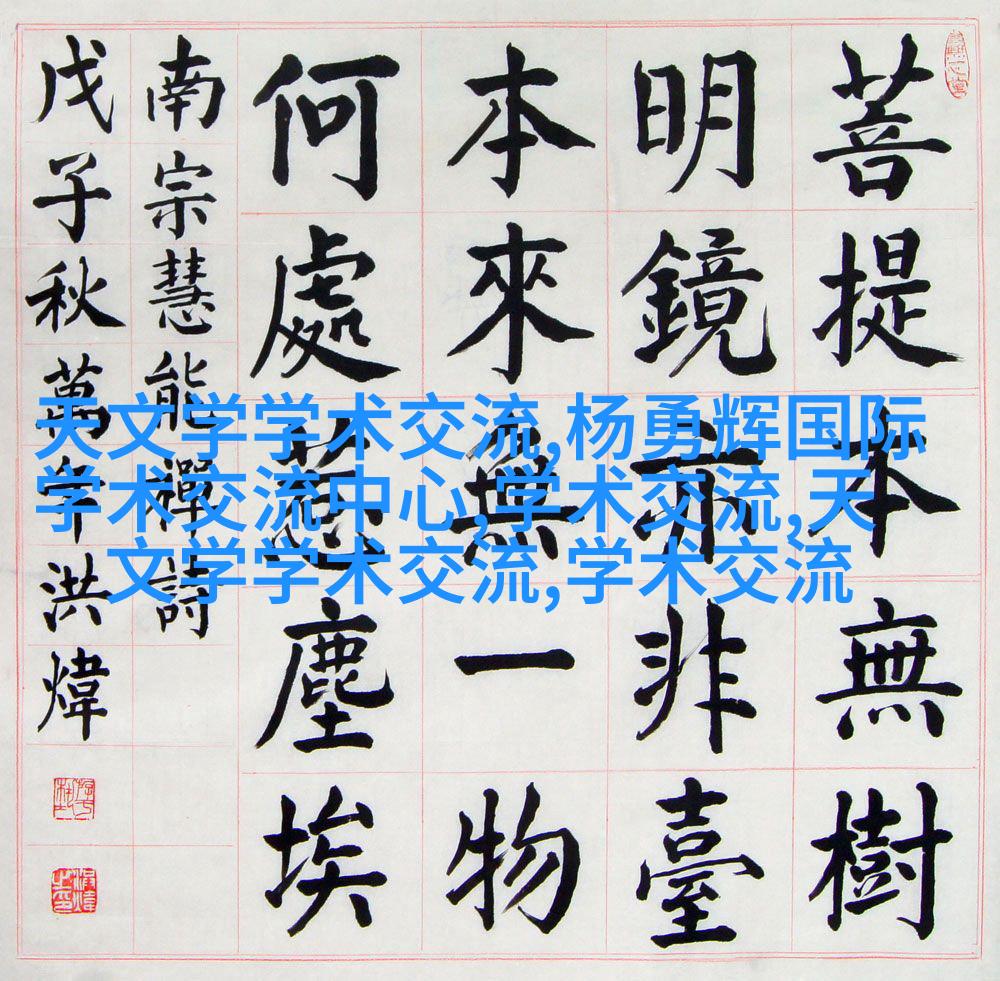 菩提本無樹
明鏡亦非臺
本來無一物
何處惹塵埃
南宗慧能禪詩
戊子秋萬年洪煒
天文学学术交流,杨勇辉国际
学术交流中心,学术交流,天
文学学术交流,学术交流